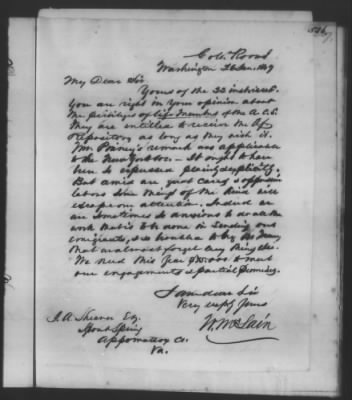 Col. Rooms
Washington 26 Jan. 1849
My Dear Sir
Yours of the 22 instant.
You are right in your opinion about
the privileges of life members of the A. C. S.
They are entitled to receive the Af.
Repository as long as they wish it.
Mr. remark was applicable
to the New Yorkers - It ought to have
been so expressed plainly & explicitly.
But amid our great cares & oppressive
labors some things of the kind will
escape our attention. Indeed we
are sometimes so anxious to do all the
work that is to be done in sending out
emigrants, & so troubled to pay the
that we almost forget any thing else.
We need this year to meet
our engagements & partial promises.
I am dear Sir
Very respy yours
W. McLain
Esq.
Spout Spring
Appomattox Co.
Va.